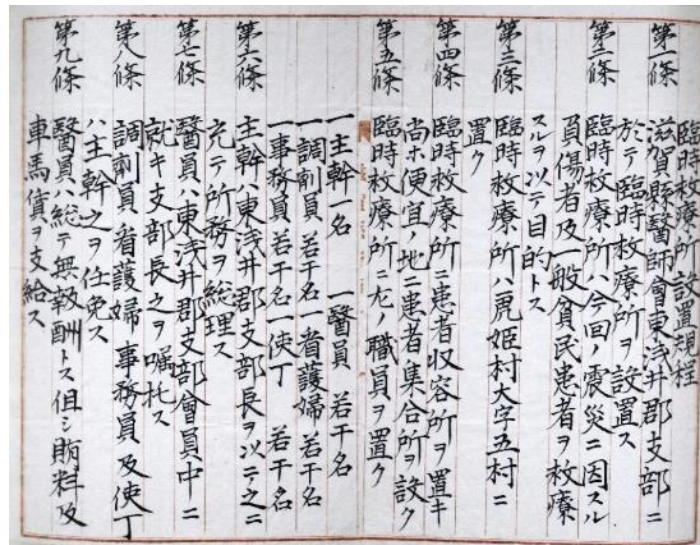 臨時救療所設置規程
第一條 滋賀縣醫師會東浅井郡支部ニ
於テ臨時救療所ヲ設置ス
第二條 臨時救療所ハ今回ノ震災ニ因スル
負傷者及一般貧民患者ヲ救療
スルヲ以テ目的トス
第三條 臨時救療所ハ虎姫村大字五村ニ
置ク
第四條 臨時救療所ニ患者収容所ヲ置キ
尚ホ便宜ノ地ニ患者集合所ヲ設ク
第五條 臨時救療所ニ左ノ職員ヲ置ク
一主幹一名 一醫員 若干名
一調劑員 若干名 一看護婦 若干名
一事務員 若干名 一使丁 若干名
第六條 主幹ハ東浅井郡支部長ヲ以テ之ニ
充テ所務ヲ総理ス
第七條 醫員ハ東浅井郡支部會員中ニ
就キ支部長之ヲ嘱托ス
第八條 調劑員 看護婦 事務員及使丁
ハ主幹之ヲ任免ス
第九條 醫員ハ総テ無報酬トス但シ賄料及
車馬賃ヲ支給ス